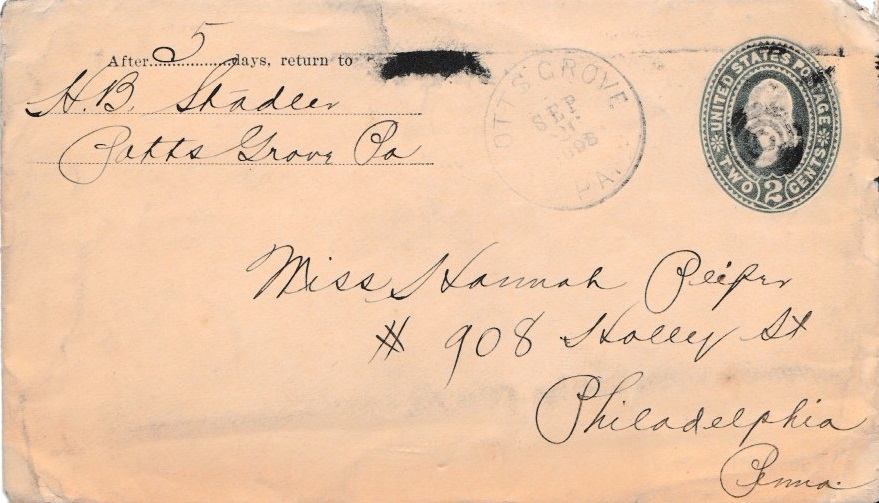 After 5 days, return to
H. B. Stadler
Potts Grove Pa
POTTS GROVE
SEP
PA.
UNITED STATES POSTAGE
TWO 2 CENTS
Miss Hannah Peifer
# 908 Holley St
Philadelphia
Penna.